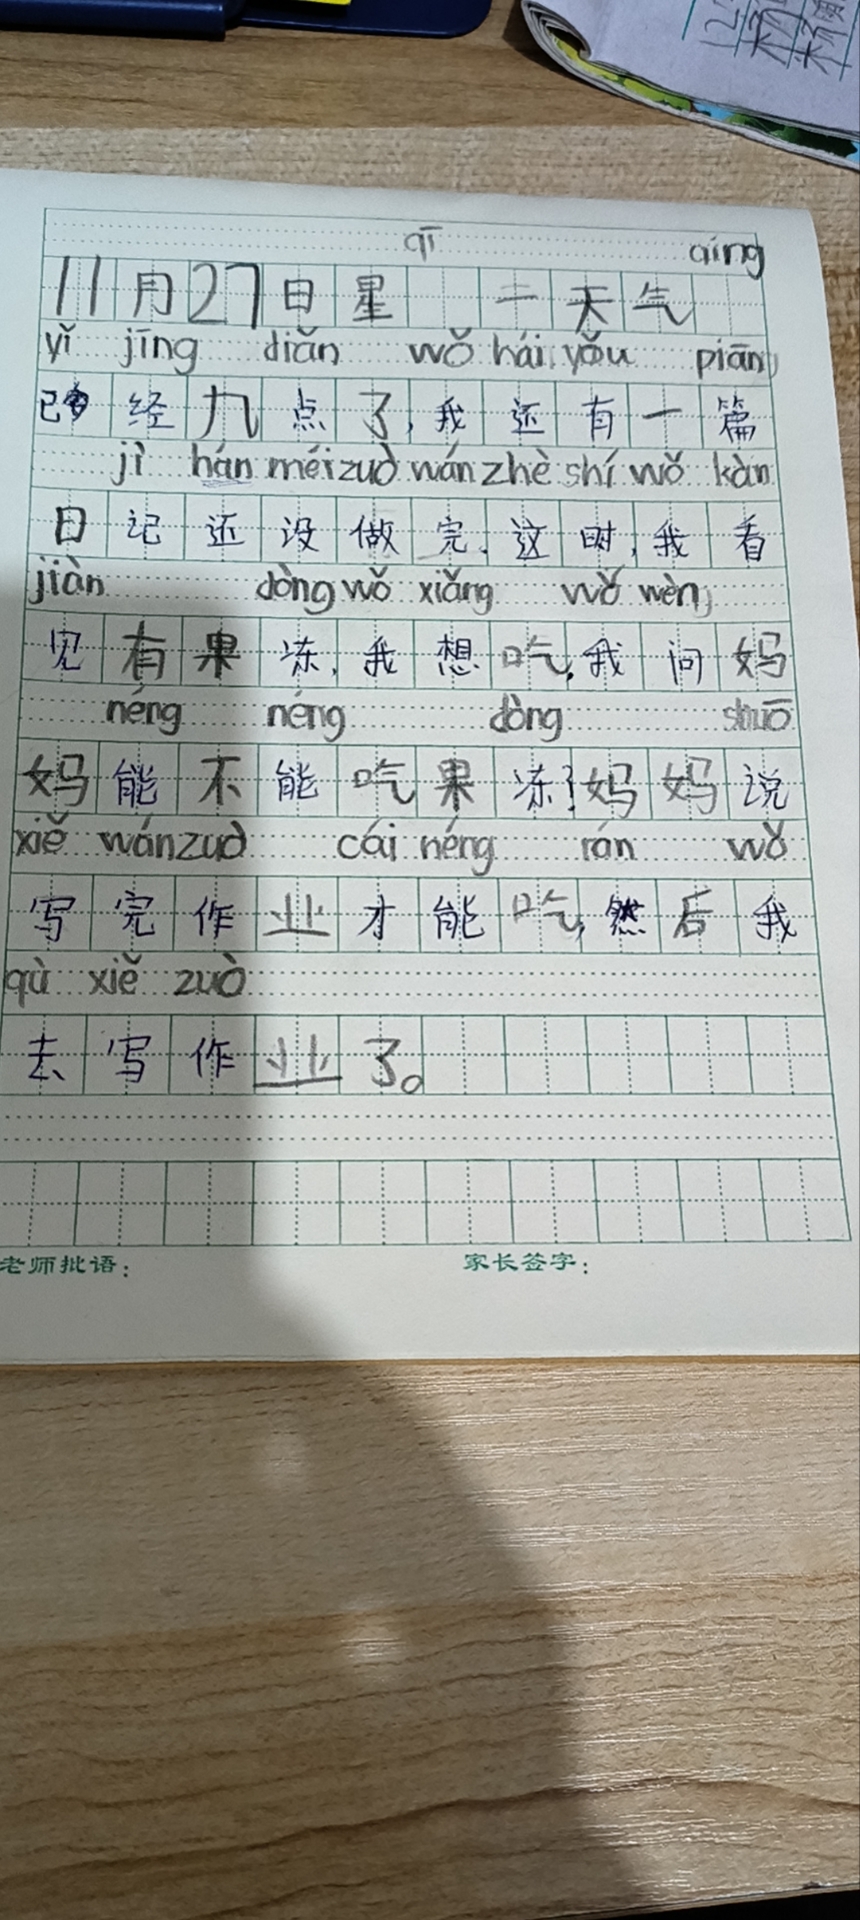 qī qíng
11月27日星 二天气
yǐ jīng diǎn wǒ hái yǒu piān
已经九点了,我还有一篇
jì hán méi zuò wán zhè shí wǒ kàn
日记还没做完.这时,我看
jiàn dòng wǒ xiǎng wǒ wèn
见有果冻,我想吃,我问妈
néng néng dòng shuō
妈能不能吃果冻?妈妈说
xiě wán zuò cái néng rán wǒ
写完作业才能吃,然后我
qù xiě zuò
去写作业了。
老师批语: 家长签字: